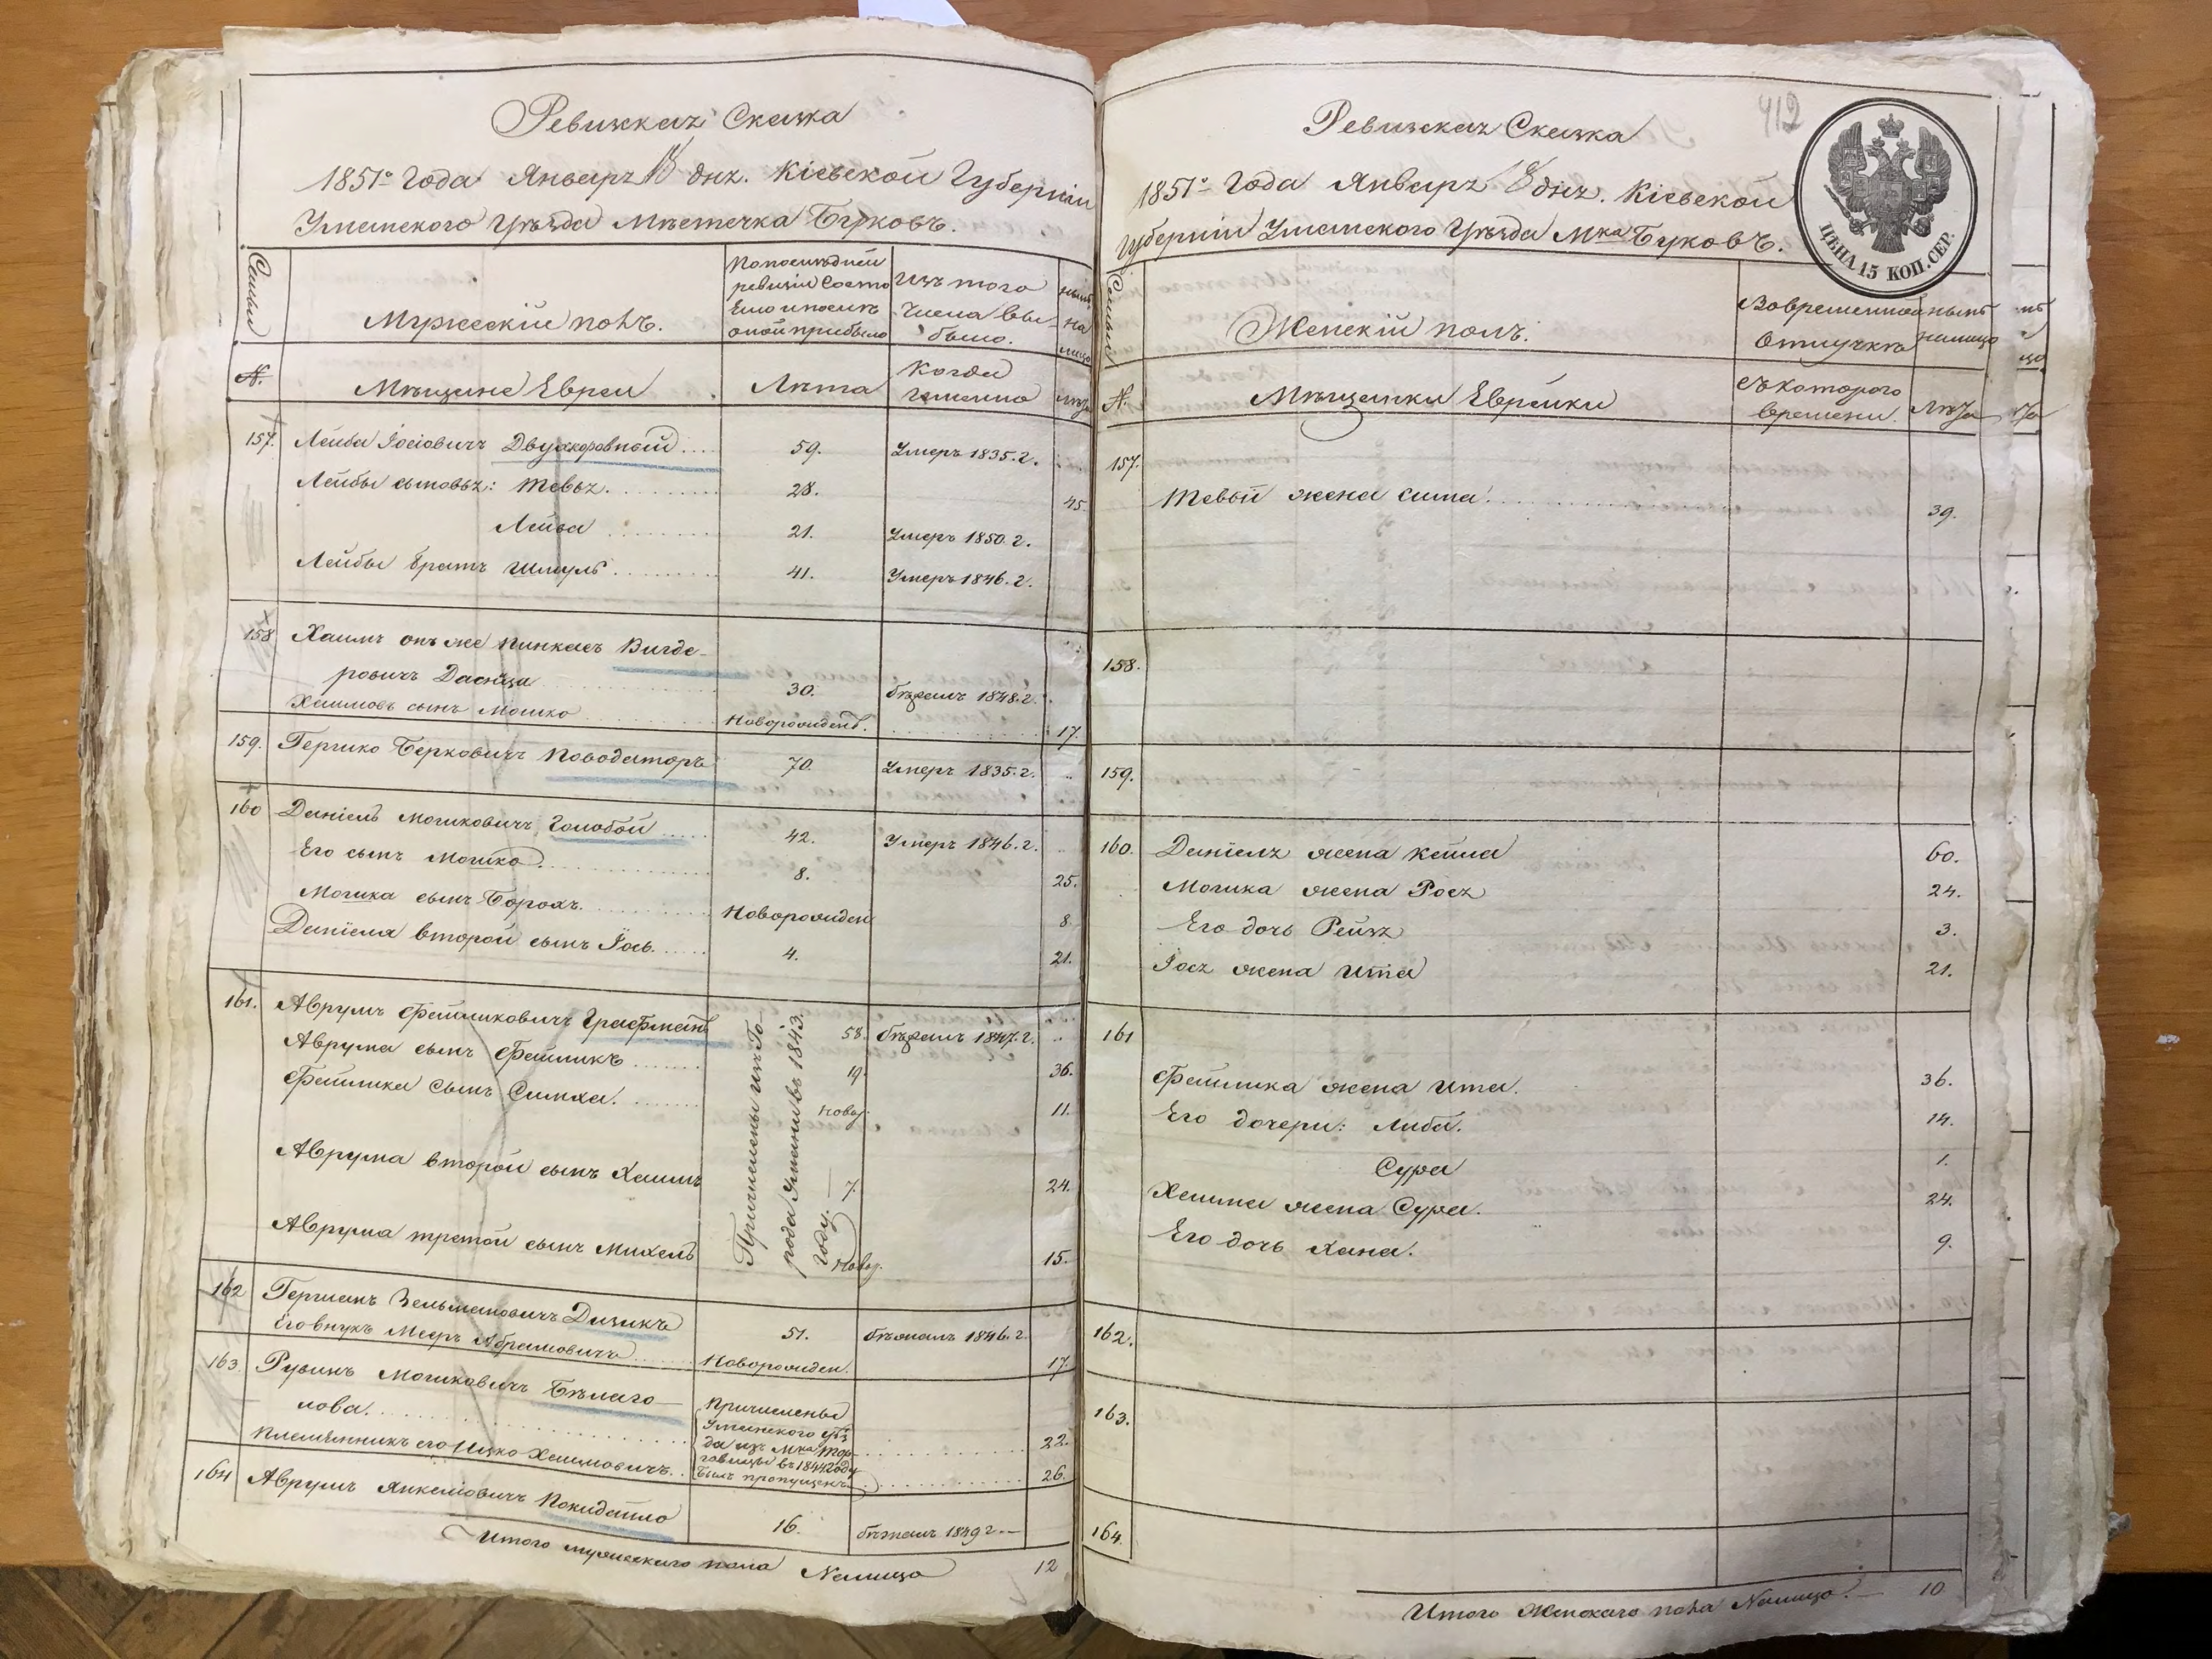 Ревижская Сказка
1851го Года Января 18 дня. Кіевской Губерніи
Уманского Уѣзда Мѣстечка Буковъ.
Семьи
Мужескій полъ.
По последней
ревизіи Состо
яло и послѣ
оной прибыло
Изъ того
числа вы-
было.
нынѣ
на
лицо
№.
Мѣщане Евреи
Лѣта
Когда
именно
Лѣта
157. Лейба Іосіовичъ Двухкоровный 59. Умеръ 1835. г.
Лейбы сыновья: Тевья 28. 45.
Лейва 21. Умеръ 1850. г.
Лейбы братъ Шмуль 41. Умеръ 1846. г.
158 Хаимъ онъ же Пинкасъ Вигде-
ровичъ 30. бѣжалъ 1848. г.
Хаимовъ сынъ Мошко Новорожденъ. 17.
159. Гершко Берковичъ Поводаторъ 70. Умеръ 1835. г.
160 Даніель Мошковичъ Голобой 42. Умеръ 1846. г.
Его сынъ Мошко. 8. 25.
Мошка сынъ Борохъ. Новорожден 8.
Даніела второй сынъ Іось. 4. 21.
161. Аврумъ Файшиковичъ Графманъ 58. бѣжалъ 1847. г.
Аврума сынъ Файшикъ 19. 36.
Файшика Сынъ Симха. Новор. 11.
Аврума второй сынъ Хаимъ 7. 24.
Аврума третой сынъ Михель Новор. 15.
Причислены изъ Го-
рода Умани въ 1843.
году.
162 Гершекъ Зельмановичъ Дизикъ 51. бѣжалъ 1846. г.
Его внукъ Меер Абрамовичъ Новорожден. 17.
163. Рувинъ Мошковичъ Бѣлаго-
лова. 22.
Племянникъ его Ицко Хаимовичъ. 26.
Причислены
Уманского уѣз
да изъ Мка Тор-
говицы въ 1844 году
былъ пропущенъ
164 Аврумъ Янкеліовичъ Покидайло 16. бѣжалъ 1849 г.
Итого мужескаго пола Налицо 12
412
Ревижская Сказка
1851го Года Января 18 дня. Кіевской
Губерніи Уманского Уѣзда Мка Буковъ.
ЦѢНА 15 КОП. СЕР.
Семьи
Женскій полъ.
Во временной
Отлучкѣ
нынѣ
налицо
№.
Мѣщанки Еврейки
съ которого
времени.
Лѣта
157.
Тевьи жена Сима. 39.
158.
159.
160. Даніела жена Кейла 60.
Мошка жена Рося 24.
Его дочь Рейзя 3.
Іося жена Ита 21.
161
Файшика жена Ита. 36.
Его дочери: Либа. 14.
Сура 1.
Хаима жена Сура. 24.
Его дочь Хана. 9.
162.
163.
164.
Итого Женскаго пола Налицо 10